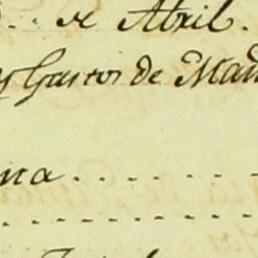 de Abril.
y Gastos de Mad
na